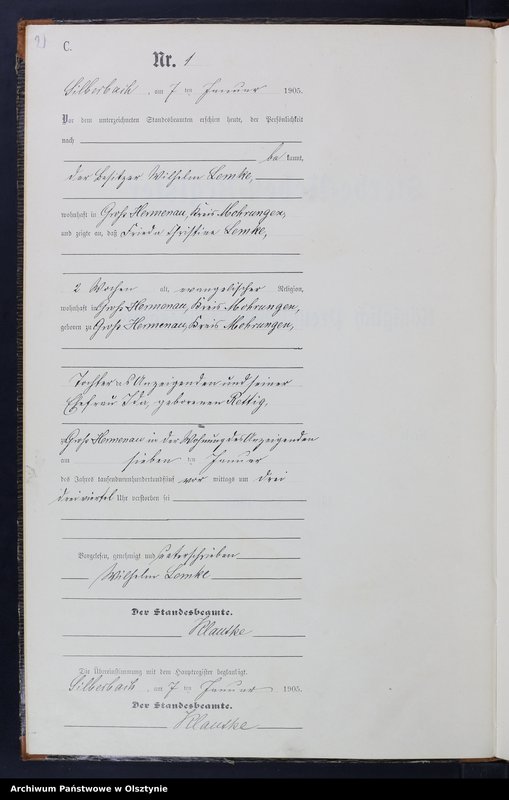 C.
Nr. 1
Silberbach, am 7 ten Januar 1905.
Vor dem unterzeichneten Standesbeamten erschien heute, der Persönlichkeit
nach
be kannt,
der Besitzer Wilhelm Lemke,
wohnhaft in Groß Hermenau, Kreis Mohrungen,
und zeigte an, daß Frieda Christine Lemke,
2 Wochen alt, evangelischer Religion,
wohnhaft in Groß Hermenau, Kreis Mohrungen,
geboren zu Groß Hermenau, Kreis Mohrungen,
Tochter des Anzeigenden und seiner
Ehefrau Ida, geborenen Rettig,
zu Groß Hermenau in der Wohnung des Anzeigenden
am sieben ten Januar
des Jahres tausendneunhundertundfünf vor mittags um drei
dreiviertel Uhr verstorben sei
Vorgelesen, genehmigt und unterschrieben
Wilhelm Lemke
Der Standesbeamte.
Klautke
Die Übereinstimmung mit dem Hauptregister beglaubigt.
Silberbach, am 7 ten Januar 1905.
Der Standesbeamte.
Klautke
Archiwum Państwowe w Olsztynie